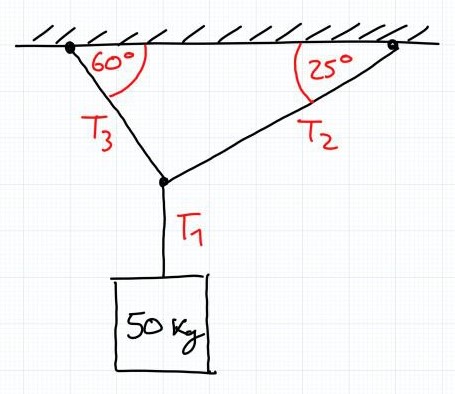 60° 25°
T3 T2
T1
50 Kg